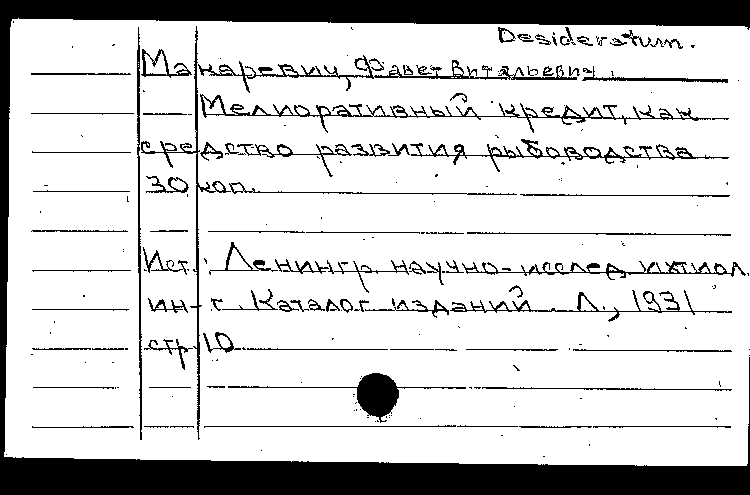 Desideratum.
Макаревич, Фавст Витальевич.
Мелиоративный кредит, как
средство развития рыбоводства
30 коп.
Ист.: Ленингр. научно-исслед. ихтиол.
ин-т. Каталог изданий. Л., 1931
стр. 10